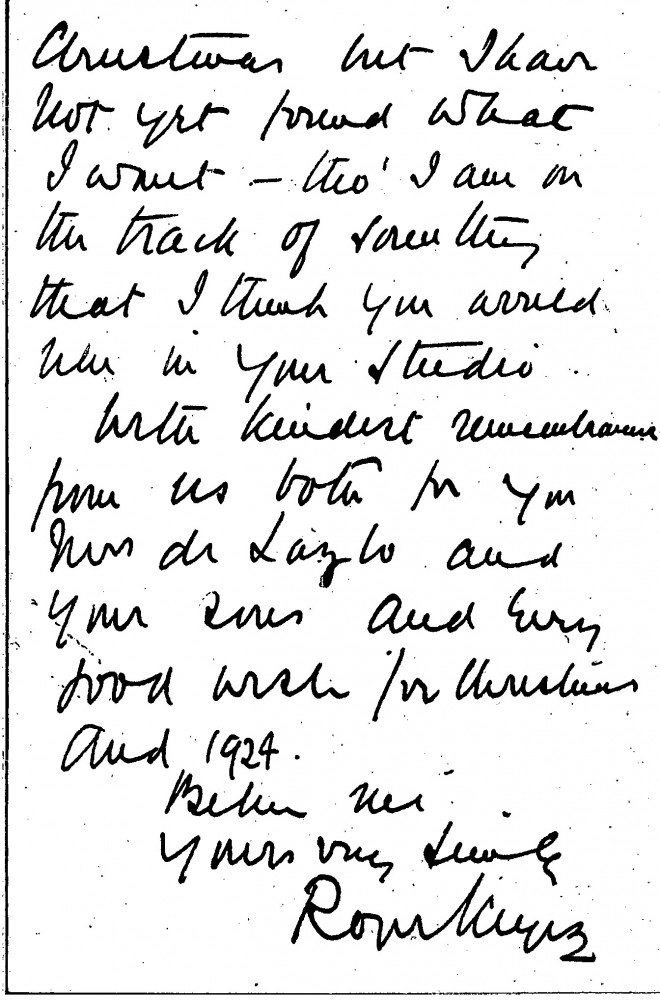 Christmas but I have
not yet found what
I want – tho' I am on
the track of something
that I think you would
use in your studio.
With kindest remembrances
from us both for you
Mrs de Lazlo and
your sons and every
good wish for Christmas
and 1924.
Believe me
Yours very sincerely
Roger